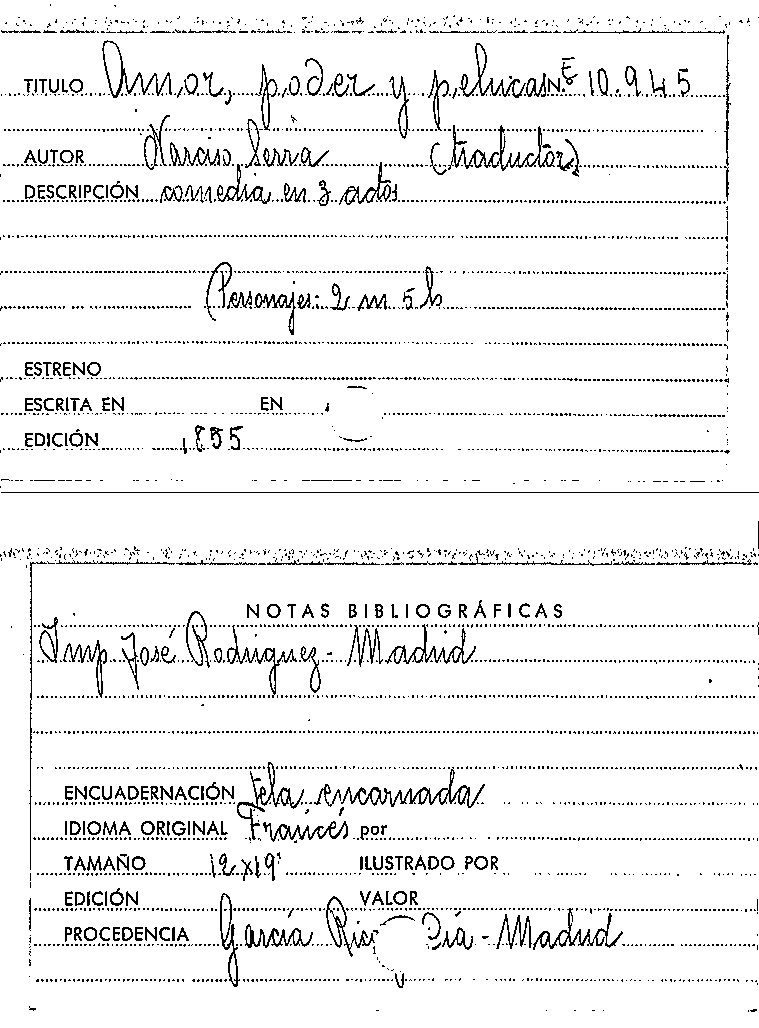 TITULO Amor, poder y pelucas N.E 10.945
AUTOR Narciso Serra (traductor)
DESCRIPCIÓN comedia en 3 actos
(Personajes: 2 m 5 h
ESTRENO
ESCRITA EN EN
EDICIÓN 1855
NOTAS BIBLIOGRÁFICAS
Imp José Rodriguez - Madrid
ENCUADERNACIÓN tela encarnada
IDIOMA ORIGINAL Francés por
TAMAÑO 12 x 19 ILUSTRADO POR
EDICIÓN VALOR
PROCEDENCIA García Rico - Madrid